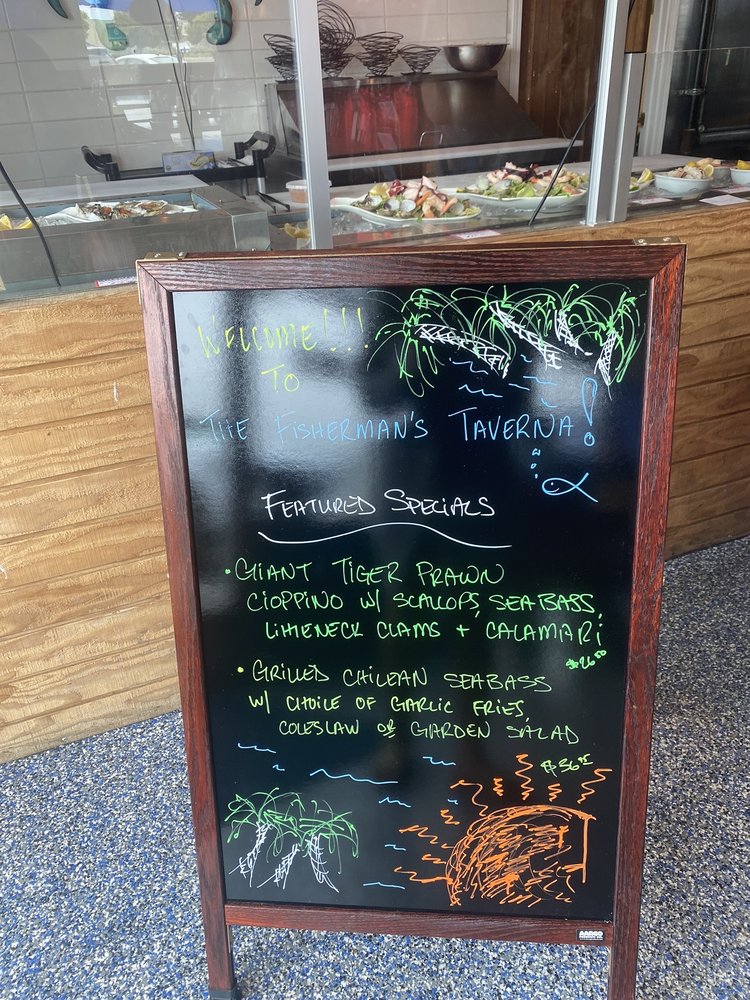 WELCOME!!!
TO
THE FISHERMAN'S TAVERNA!
FEATURED SPECIALS
• GIANT TIGER PRAWN
CIOPPINO W/ SCALLOPS, SEA BASS,
LITTLENECK CLAMS + CALAMARI
• GRILLED CHILEAN SEABASS
W/ CHOICE OF GARLIC FRIES,
COLESLAW OR GARDEN SALAD
AARCO